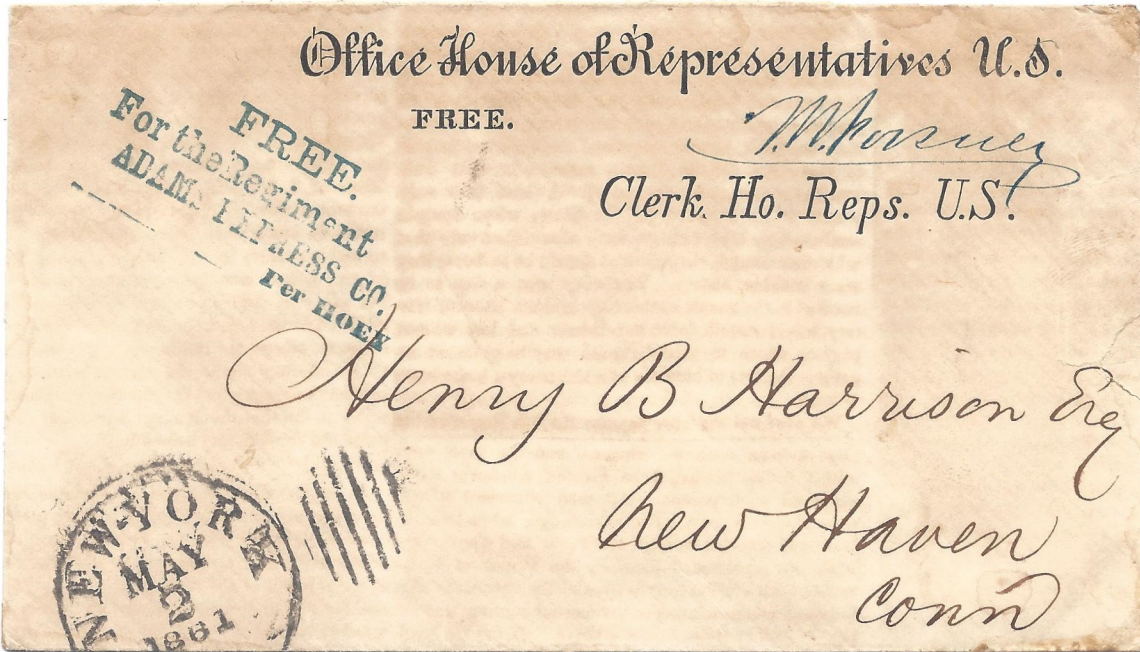 Office House of Representatives U.S.
FREE.
J.W. Forney
Clerk. Ho. Reps. U.S.
FREE.
For the Regiment
ADAMS EXPRESS CO.
Per HOEY
Henry B Harrison Esq
New Haven
Conn
NEW-YORK
MAY
2
1861